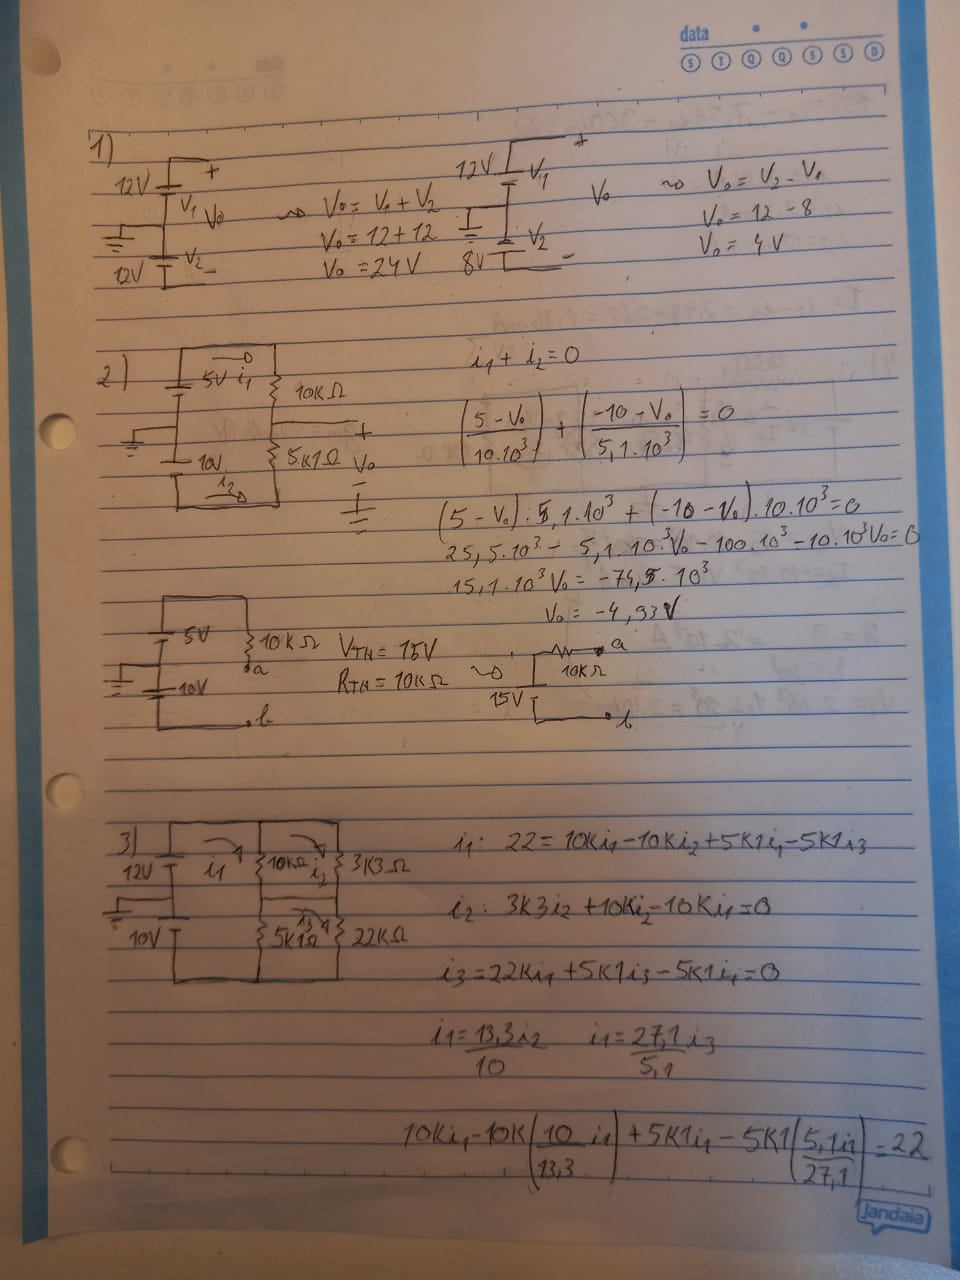 data
S T Q Q S S D
1)
12V
+
V₁
V₀
V₂
12V
-
~> V₀ = V₁ + V₂
V₀ = 12 + 12
V₀ = 24V
12V
+
V₁
V₀
V₂
8V
-
~> V₀ = V₂ - V₁
V₀ = 12 - 8
V₀ = 4V
2)
5V i₁
10KΩ
+
10V
5K1Ω V₀
i₂
i₁ + i₂ = 0
(5 - V₀ / 10.10³) + (-10 - V₀ / 5,1.10³) = 0
(5 - V₀).5,1.10³ + (-10 - V₀).10.10³ = 0
25,5.10³ - 5,1.10³V₀ - 100.10³ - 10.10³V₀ = 0
15,1.10³V₀ = -74,5.10³
V₀ = -4,93V
5V
10KΩ
a
10V
b
VTH = 15V
RTH = 10KΩ
~>
a
10KΩ
15V
b
3)
12V
i₁
10KΩ
i₂
3K3Ω
10V
5K1Ω
i₃
22KΩ
i₁: 22 = 10Ki₁ - 10Ki₂ + 5K1i₁ - 5K1i₃
i₂: 3K3i₂ + 10Ki₂ - 10Ki₁ = 0
i₃ = 22Ki₁ + 5K1i₃ - 5K1i₁ = 0
i₁ = 13,3i₂ / 10 i₁ = 27,1 / 5,1 i₃
10Ki₁ - 10K(10 / 13,3 i₁) + 5K1i₁ - 5K1(5,1i₁ / 27,1) = 22
Jandaia